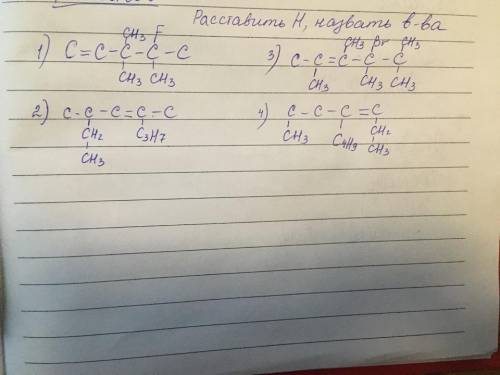 Расставить H, назвать в-ва
1) C=C-C-C-C
CH3 F
CH3 CH3
2) C-C-C=C-C
CH2 C3H7
CH3
3) C-C=C-C-C
CH3 Br CH3
CH3 CH3 CH3
4) C-C-C=C
CH3 C4H9 CH2
CH3